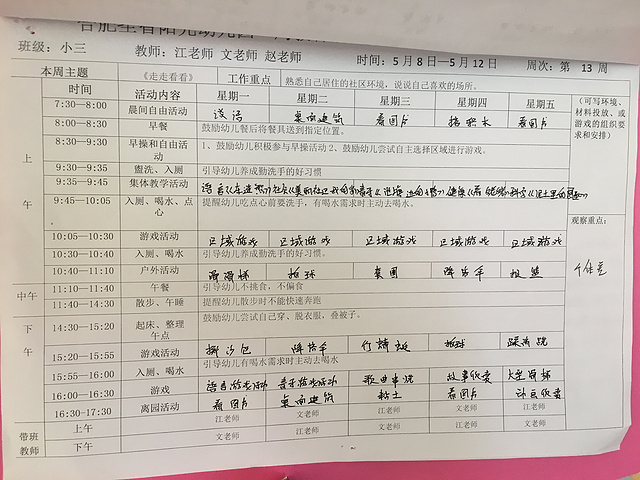 班级：小三 教师：江老师 文老师 赵老师 时间：5月8日—5月12日 周次：第 13 周
本周主题 《走走看看》 工作重点 熟悉自己居住的社区环境，说说自己喜欢的场所。
时间 活动内容 星期一 星期二 星期三 星期四 星期五 （可写环境、材料投放、或游戏的组织要求和安排）
上午
7:30—8:00 晨间自由活动 谈话 桌面建筑 看图书 搭积木 看图书
8:00—8:30 早餐 鼓励幼儿餐后将餐具送到指定位置。
8:30—9:30 早操和自由活动 1、鼓励幼儿积极参与早操活动 2、鼓励幼儿尝试自主选择区域进行游戏。
9:30—9:35 盥洗、入厕 引导幼儿养成勤洗手的好习惯
9:35—9:45 集体教学活动
9:45—10:05 入厕、喝水、点心 提醒幼儿吃点心前要洗手，有喝水需求时主动去喝水。
观察重点：
10:05—10:30 游戏活动 区域游戏 区域游戏 区域游戏 区域游戏 区域游戏
10:30—10:40 入厕、喝水 引导幼儿养成勤洗手的好习惯。
10:40—11:10 户外活动 滑滑梯 拍球
中午
11:10—11:40 午餐 引导幼儿不挑食，不偏食
11:40—14:30 散步、午睡 提醒幼儿散步时不能快速奔跑
下午
14:30—15:20 起床、整理午点 鼓励幼儿尝试自己穿、脱衣服，叠被子。
15:20—15:55 游戏活动 拍球
15:55—16:00 入厕、喝水 引导幼儿有喝水需求时主动去喝水
16:00—16:30 游戏 歌曲串烧 故事欣赏
16:30-17:30 离园活动 看图书 桌面建筑 粘土 看图书 动画欣赏
带班教师
上午 江老师 文老师 江老师 文老师 江老师
下午 文老师 江老师 文老师 江老师 文老师